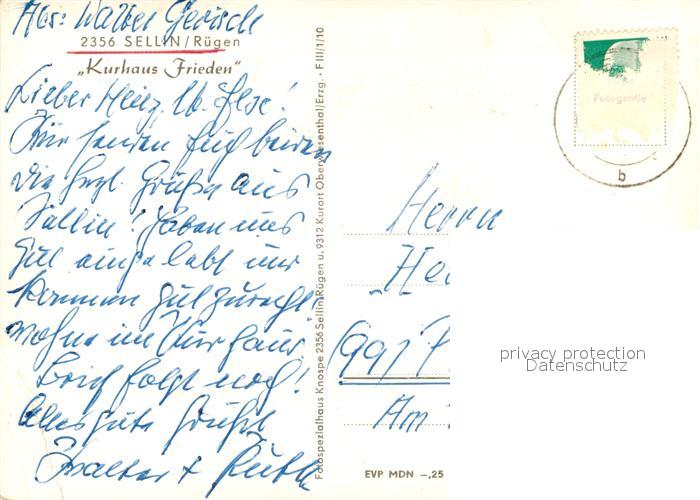 Abs: Walter Gerisch
2356 SELLIN/Rügen
„Kurhaus Frieden"
Lieber Heinz, lb. Ilse!
Wir senden Euch beiden
die herzl. Grüße aus
Sellin! Haben uns
gut eingelebt und
kommen gut zurecht!
wohne im Kurhaus.
Brief folgt noch!
Alles gute Grüße
Walter + Ruth
Fotospezialhaus Knospe 2356 Sellin/Rügen u. 9312 Kurort Oberwiesenthal/Erzg. · F III/1/10
Fotografie
b
Herrn
He
991 P
Am
EVP MDN –,25
privacy protection
Datenschutz